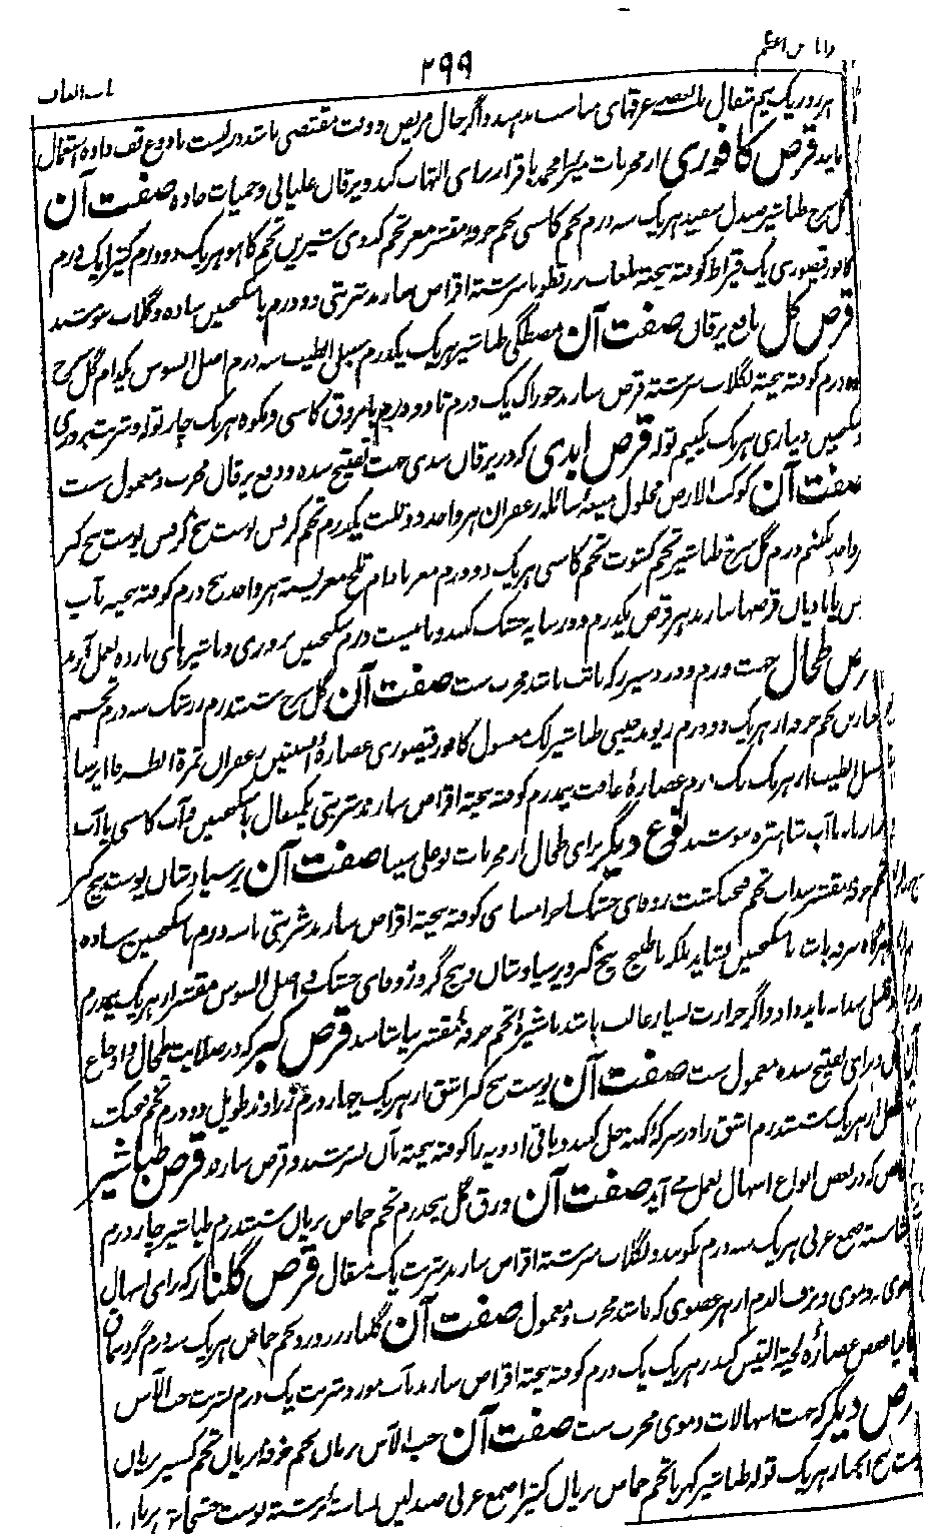 ۲۹۹
هر روز یک نیم مثقال عرقهای مناسب بدهند و اگر حال مریض و وقت مقتضی باشد در لبست با دوغ تف داده استعمال
باید قرص کافوری از مجربات میر محمد باقر از برای التهاب کبد و یرقان غلیانی و حمیات حاده صفت آن
گل سرخ طباشیر صندل سفید هریک سه درم تخم کاسنی تخم خرفه مقشر مغز تخم کدوی شیرین تخم کاهو هریک دو درم کتیرا یک درم
کافور قیصوری یک قیراط کوفته بیخته بلعاب بزرقطونا سرشته اقراص سازند شربتی دو درم با سکنجبین ساده و گلاب نوشند
قرص گل نافع یرقان صفت آن مصطگی طباشیر هریک یکدرم سنبل الطیب سه درم اصل السوس کدام گل سرخ
درم کوفته بیخته بگلاب سرشته قرص سازند خوراک یک درم تا دو درم با مروق کاسنی و مکوه هریک چار توله و شربت بزوری
سکنجبین دیناری هریک یکنیم توله قرص ابدی که در یرقان سدی جهت تفتیح سده و دفع یرقان مجرب و معمول ست
صفت آن کوکب الارض محلول میعه سائله زعفران هر واحد دو ثلث یکدرم تخم کرفس پوست بیخ کرفس پوست بیخ کبر
واحد یکنیم درم گل سرخ طباشیر تخم کشوث تخم کاسنی هریک دو درم مغز بادام تلخ مغز پسته هر واحد پنج درم کوفته بیخته بآب
بادیان قرصها سازند هر قرص یکدرم و در سایه خشک کنند و با بیست درم سکنجبین بزوری و با شیرهای بارده بعمل آرند
قرص طحال جهت ورم و درد سپرز که با تب باشد مجرب ست صفت آن گل سرخ شش درم زرشک سه درم تخم
تخم خرفه از هریک دو درم ریوند چینی طباشیر لک مغسول کافور قیصوری عصاره افسنتین زعفران ثمرة الطرفا ایرسا
سنبل الطیب از هریک یک درم عصاره غافث نیمدرم کوفته بیخته اقراص سازند شربتی یکمثقال با سکنجبین و آب کاسنی یا آب
یا آب شاهتره نوشند نوع دیگر برای طحال از مجربات بو علی سینا صفت آن پرسیاوشان پوست بیخ کبر
تخم خرفه مقشر سداب تخم فنجنکشت زوفای خشک اجزا مساوی کوفته بیخته اقراص سازند شربتی تا سه درم با سکنجبین ساده
و هرگاه سرفه با سکنجبین نشاید بلکه با طبیخ بیخ کبر و پرسیاوشان و بیخ گز و زوفای خشک و اصل السوس مقشر از هریک نیمدرم
باید داد و اگر حرارت بسیار غالب باشد با شیره تخم خرفه مقشر بیاشامند قرص کبر که در صلابت طحال و اوجاع
و برای تفتیح سده معمول ست صفت آن پوست بیخ کبر اشق از هریک چهار درم زراوند طویل دو درم تخم فنجنکشت
فلفل از هریک شش درم اشق را در سرکه کهنه حل کنند و باقی ادویه را کوفته بیخته بآن بسرشند و قرص سازند قرص طباشیر
که در بعض انواع اسهال بعمل مے آید صفت آن ورق گل پنجدرم تخم حماض بریان شش درم طباشیر چار درم
نشاسته صمغ عربی هریک سه درم بکوبند و بگلاب سرشته اقراص سازند شربت یک مثقال قرص گلنار که برای اسهال
و دموی و نزف الدم از هر عضوی که باشد مجرب و معمول صفت آن گلنار زرورد تخم حماض هریک سه درم گرد سماق
عصاره لحیة التیس کندر هریک یک درم کوفته بیخته اقراص سازند بآب مورد شربت یک درم بشربت حب الآس
قرص دیگر که جهت اسهالات دموی مجرب ست صفت آن حب الآس بریان تخم خرفه بریان تخم کسیر بریان
بیخ انجبار هریک توله طباشیر کهربا تخم حماض بریان کتیرا صمغ عربی صندلین نشاسته برشته پوست خشخاش بریان